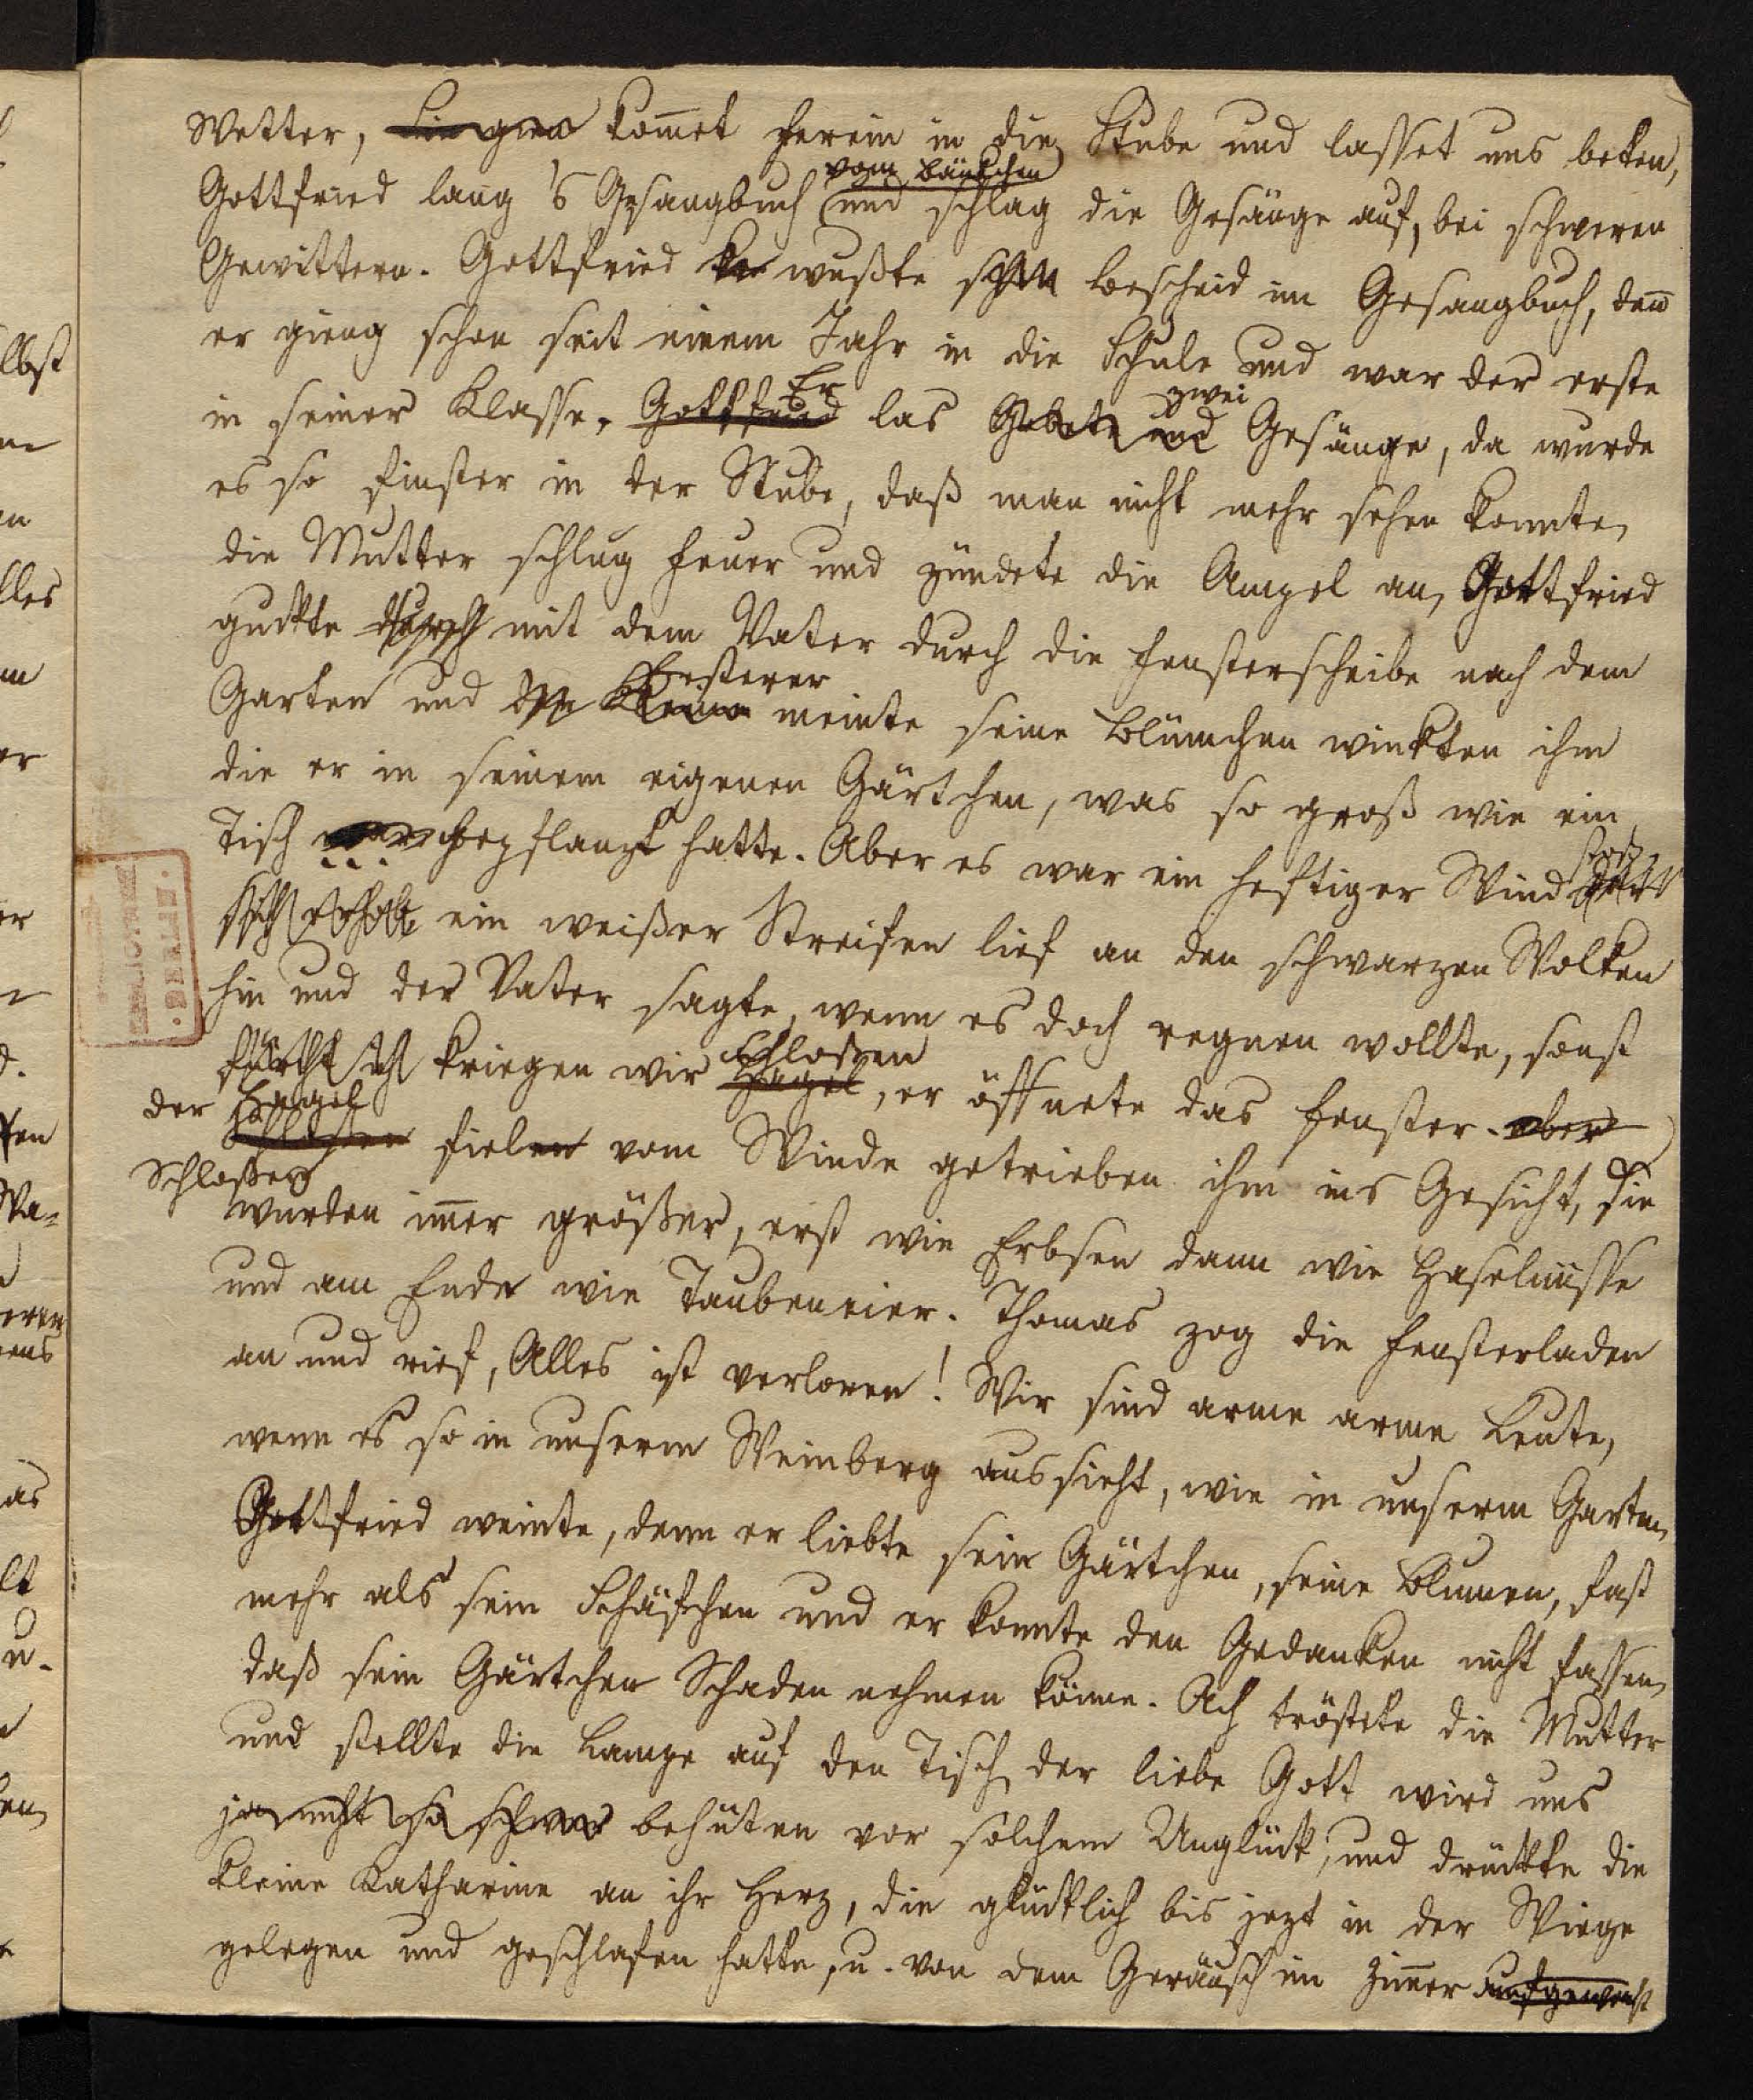 Wetter, kom̄et herein in die Stube und lasset uns beten,
vom Bänkchen
Gottfried lang 's Gesangbuch und schlag die Gesänge auf, bei schweren
Gewittern. Gottfried wußte schon Bescheid im Gesangbuch, den̄
er gieng schon seit einem Jahr in die Schule und war der erste
Er zwei
in seiner Klasse. Gottfried las Gebete und Gesänge, da wurde
es so finster in der Stube, daß man nicht mehr sehen konnte,
die Mutter schlug Feuer und zündete die Ampel an, Gottfried
guckte durch mit dem Vater durch die Fensterscheibe nach dem
ersterer
Garten und der Kleine meinte seine Blümchen winkten ihm
die er in seinem eigenen Gärtchen, was so groß wie ein
Tisch war gepflanzt hatte. Aber es war ein heftiger Wind der
sich erhob ein weißer Streifen lief an den schwarzen Wolken
hin und der Vater sagte, wenn es doch regnen wollte, sonst
Schloßen
fürcht ich kriegen wir Hagel, er öffnete das Fenster. aber
der Hagel
Schloßen fielen vom Winde getrieben ihm ins Gesicht, die
Schloßen
wurden im̄er größer, erst wie Erbsen dann wie Haselnüsse
und am Ende wie Taubeneier. Thomas zog die Fensterladen
an und rief, Alles ist verloren! Wir sind arme arme Leute,
wenn es so in unserm Weinberg aussieht, wie in unserm Garten,
Gottfried weinte, denn er liebte sein Gärtchen, seine Blumen, fast
mehr als sein Schäfchen und er konnte den Gedanken nicht fassen,
daß sein Gärtchen Schaden nehmen könne. Ach tröstete die Mutter
und stellte die Lampe auf den Tisch, der liebe Gott wird uns
ja nicht so schwer behüten vor solchem Unglück, und drückte die
kleine Katharine an ihr Herz, die glücklich bis jezt in der Wiege
gelegen und geschlafen hatte, u. von dem Geräusch im Zim̄er aufgewacht